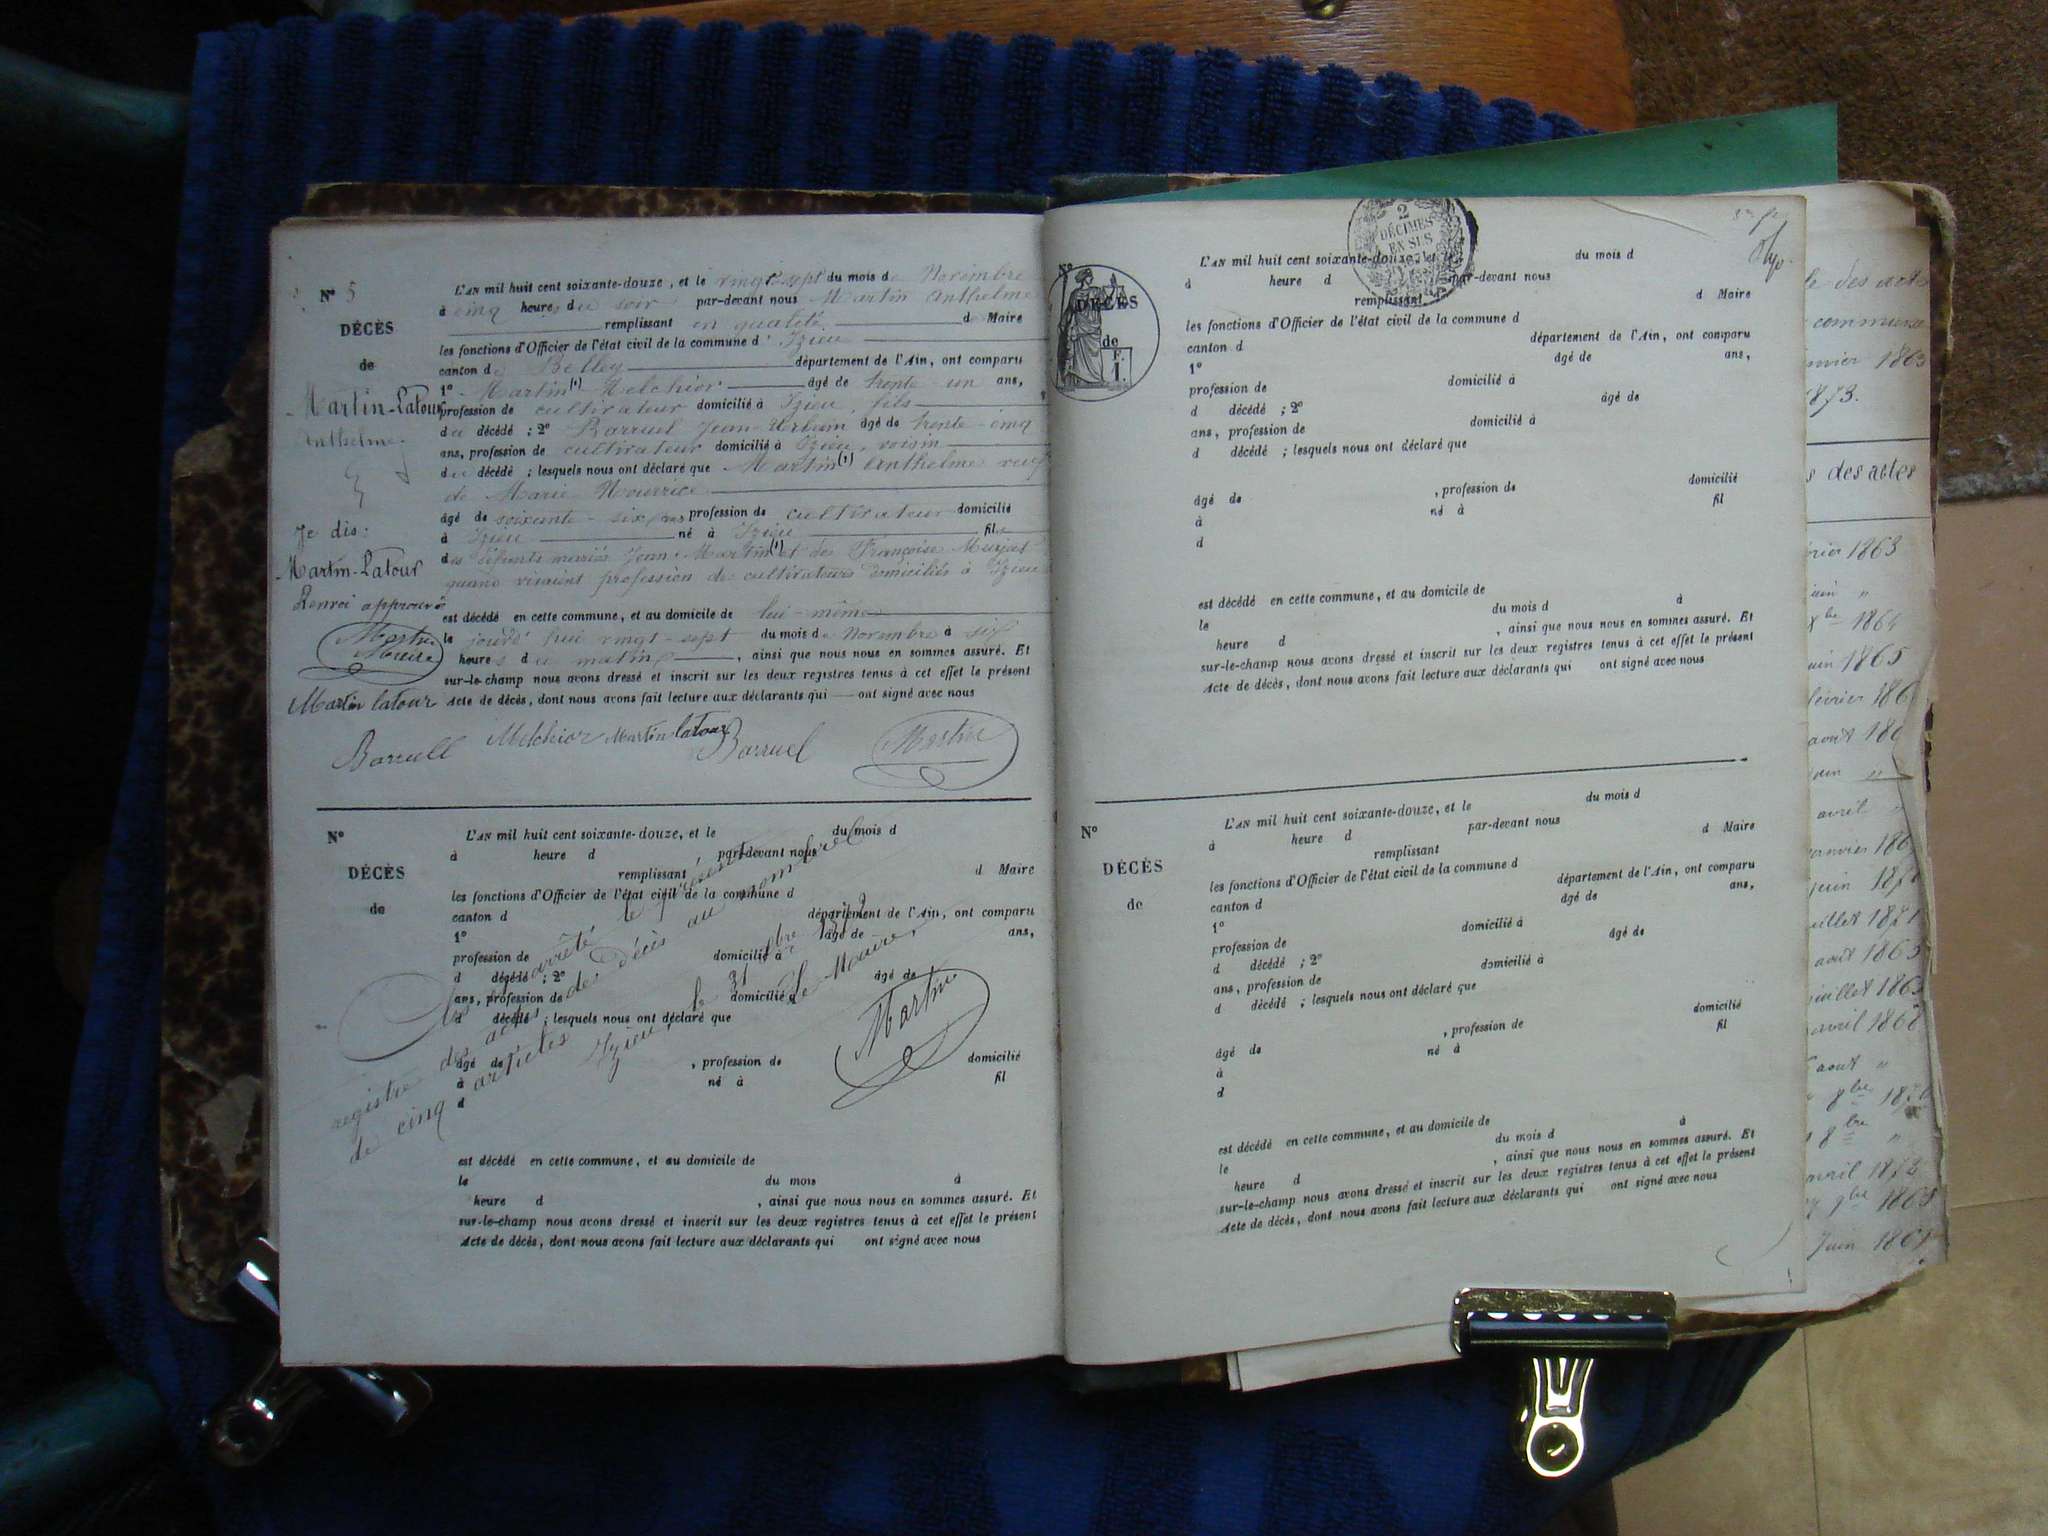 N° 5
DÉCÈS
de
Martin-Latour
Anthelme
Je dis:
Martin-Latour
Renvoi approuvé
Martin
Maire
Martin latour
L'AN mil huit cent soixante-douze, et le vingt sept du mois de Novembre
à cinq heures du soir par-devant nous Martin Anthelme
remplissant en qualité de Maire
les fonctions d'Officier de l'état civil de la commune d'Izieu
canton de Belley département de l'Ain, ont comparu
1° Martin (1) Melchior âgé de trente un ans,
profession de cultivateur domicilié à Izieu, fils
du décédé ; 2° Barruel Jean-Urbain âgé de trente cinq
ans, profession de cultivateur domicilié à Izieu, voisin
du décédé ; lesquels nous ont déclaré que Martin (1) Anthelme veuf
de Marie Nourrice
âgé de soixante-six ans, profession de cultivateur domicilié
à Izieu né à Izieu fils
des défunts mariés Jean Martin (1) et de Françoise
quand vivaient profession de cultivateurs domiciliés à Izieu
est décédé en cette commune, et au domicile de lui-même
le jourd'hui vingt-sept du mois de Novembre à six
heures du matin, ainsi que nous nous en sommes assuré. Et
sur-le-champ nous avons dressé et inscrit sur les deux registres tenus à cet effet le présent
Acte de décès, dont nous avons fait lecture aux déclarants qui ont signé avec nous
Barruel Melchior Martin latour Barruel Martin
N°
DÉCÈS
de
L'AN mil huit cent soixante-douze, et le du mois d
à heure d par-devant nous
remplissant d Maire
les fonctions d'Officier de l'état civil de la commune d
canton d département de l'Ain, ont comparu
1° âgé de ans,
profession de domicilié à
d décédé ; 2° âgé de
ans, profession de domicilié à
d décédé ; lesquels nous ont déclaré que
âgé de , profession de domicilié
à né à fil
d
est décédé en cette commune, et au domicile de
le du mois à
heure d , ainsi que nous nous en sommes assuré. Et
sur-le-champ nous avons dressé et inscrit sur les deux registres tenus à cet effet le présent
Acte de décès, dont nous avons fait lecture aux déclarants qui ont signé avec nous
arrêté le présent
registre des actes des décès au nombre
de cinq articles Izieu, le 31 Xbre 1872
Le Maire,
Martin
2
DÉCIMES
EN SUS
N°
DÉCÈS
de
F.
1.
L'AN mil huit cent soixante-douze, et le du mois d
à heure d par-devant nous
remplissant d Maire
les fonctions d'Officier de l'état civil de la commune d
canton d département de l'Ain, ont comparu
1° âgé de ans,
profession de domicilié à
d décédé ; 2° âgé de
ans, profession de domicilié à
d décédé ; lesquels nous ont déclaré que
âgé de , profession de domicilié
à né à fil
d
est décédé en cette commune, et au domicile de
le du mois d à
heure d , ainsi que nous nous en sommes assuré. Et
sur-le-champ nous avons dressé et inscrit sur les deux registres tenus à cet effet le présent
Acte de décès, dont nous avons fait lecture aux déclarants qui ont signé avec nous
N°
DÉCÈS
de
L'AN mil huit cent soixante-douze, et le du mois d
à heure d par-devant nous
remplissant d Maire
les fonctions d'Officier de l'état civil de la commune d
canton d département de l'Ain, ont comparu
1° âgé de ans,
profession de domicilié à
d décédé ; 2° âgé de
ans, profession de domicilié à
d décédé ; lesquels nous ont déclaré que
âgé de , profession de domicilié
à né à fil
d
est décédé en cette commune, et au domicile de
le du mois d à
heure d , ainsi que nous nous en sommes assuré. Et
sur-le-champ nous avons dressé et inscrit sur les deux registres tenus à cet effet le présent
Acte de décès, dont nous avons fait lecture aux déclarants qui ont signé avec nous
des actes
commune
janvier 1863
1873.
des actes
1863
juin "
1864
juin 1865
février 186
avril "
janvier 186
juin
juillet 1871
août 1865
juillet 1863
avril 1868
août "
8bre
8bre "
avril 1872
9bre 1868
Juin